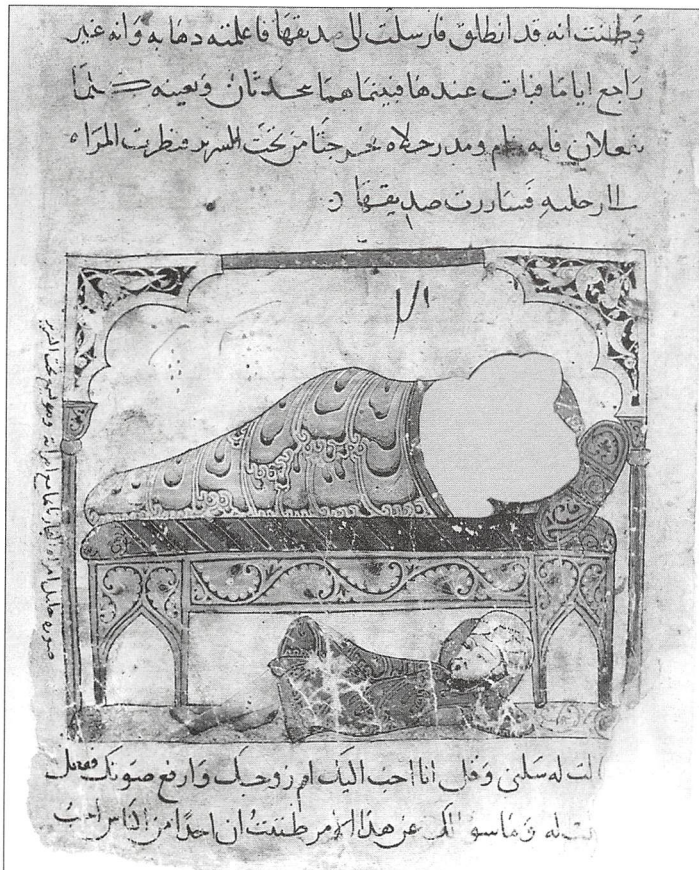 وظنت انه قد انطلق فارسلت الى صديقها فاعلمته دهابه وانه غير
راجع اياما فبات عندها فبينما هما يتحدثان وبعينه كلما
يفعلان فانه نام ومد رجلاه فخرجتا من تحت السرير فنظرت المراه
الا رجليه فساررت صديقها
صورة خليل امراة النجار نائما مع امراته وهو تحت السرير
الت له سلنى وقل انا احب اليك ام زوجك وارفع صوتك ففعل
لت له وما سوالك عن هذا الامر ظننت ان احدا من الناس احب